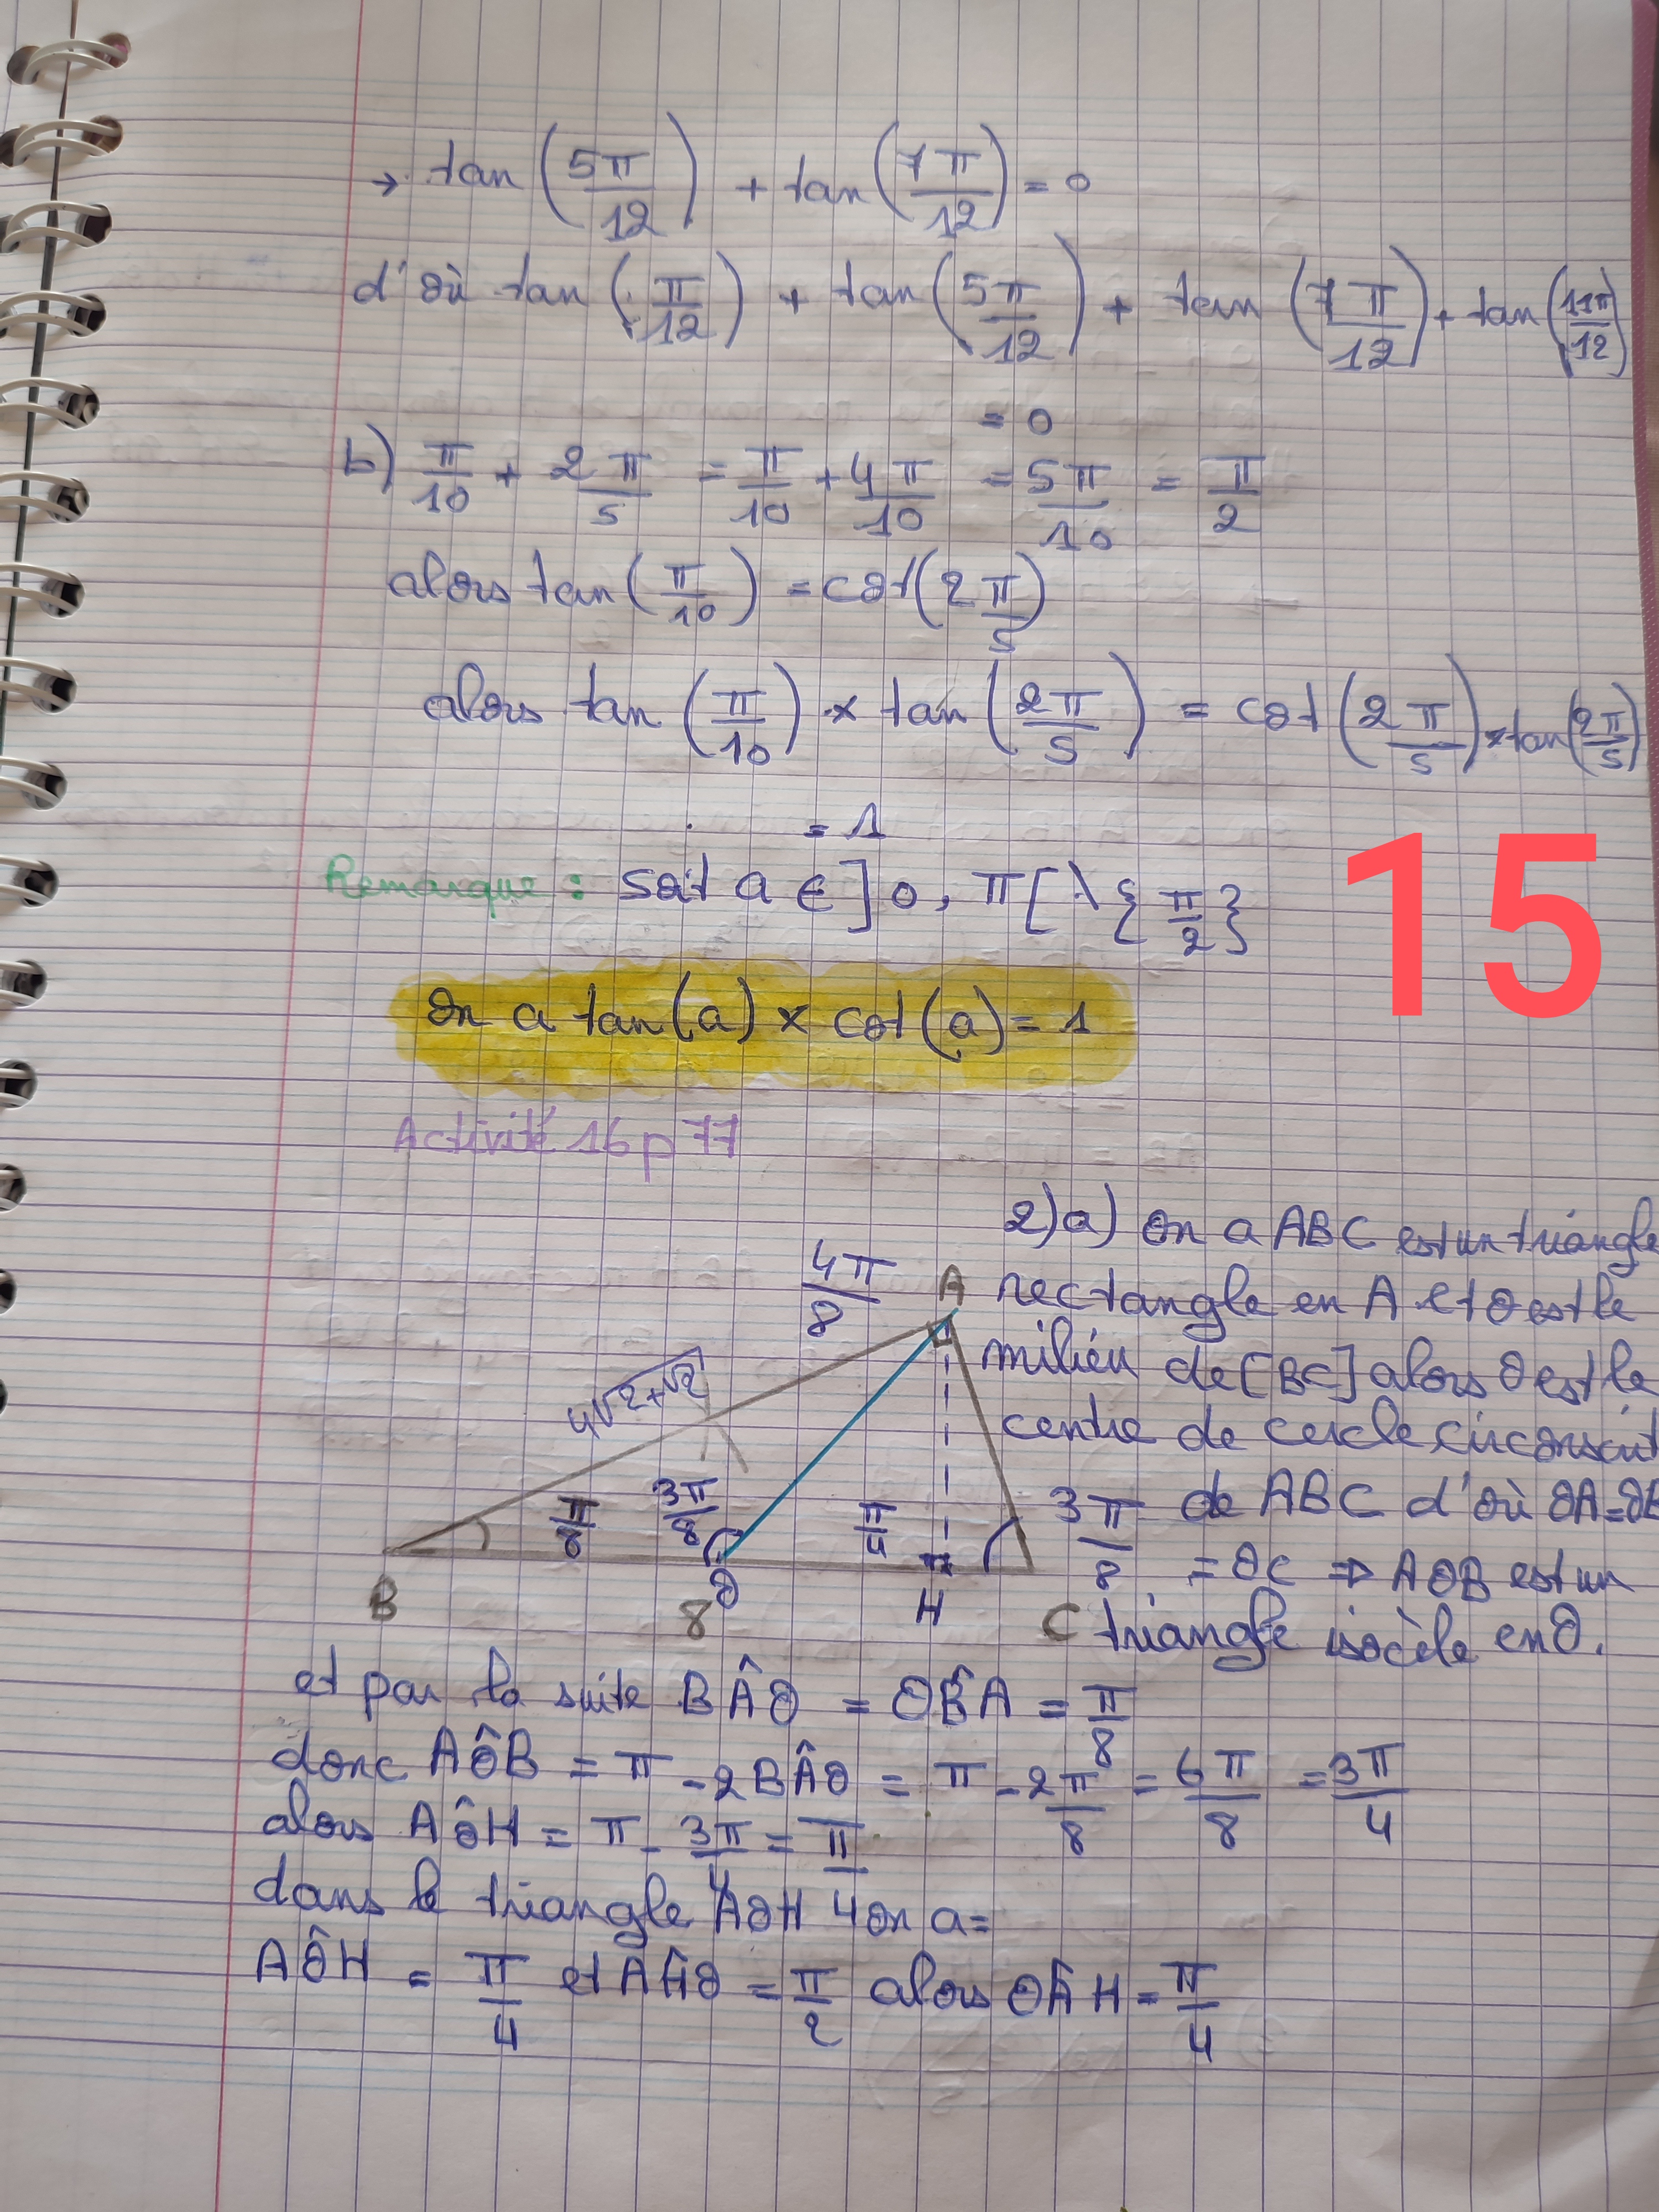 → tan (5π/12) + tan (7π/12) = 0
d'où tan (π/12) + tan (5π/12) + tan (7π/12) + tan (11π/12)
= 0
b) π/10 + 2π/5 = π/10 + 4π/10 = 5π/10 = π/2
alors tan (π/10) = cot (2π/5)
alors tan (π/10) × tan (2π/5) = cot (2π/5) × tan (2π/5)
= 1
15
Remarque : Soit a ∈ ]0, π[ \ {π/2}
On a tan(a) × cot(a) = 1
Activité 16 p 77
2) a) On a ABC est un triangle
rectangle en A et O est le
milieu de [BC] alors O est le
centre de cercle circonscrit
de ABC d'où OA = OB
= OC ⇒ AOB est un
triangle isocèle en O.
4π/8
A
4√2+√2
π/8
3π/8
π/4
3π/8
B
8
O
H
C
et par la suite BÂO = OB̂A = π/8
donc AÔB = π - 2BÂO = π - 2π/8 = 6π/8 = 3π/4
alors AÔH = π - 3π/4 = π/4
dans le triangle AOH on a =
AÔH = π/4 et AĤO = π/2 alors OÂH = π/4